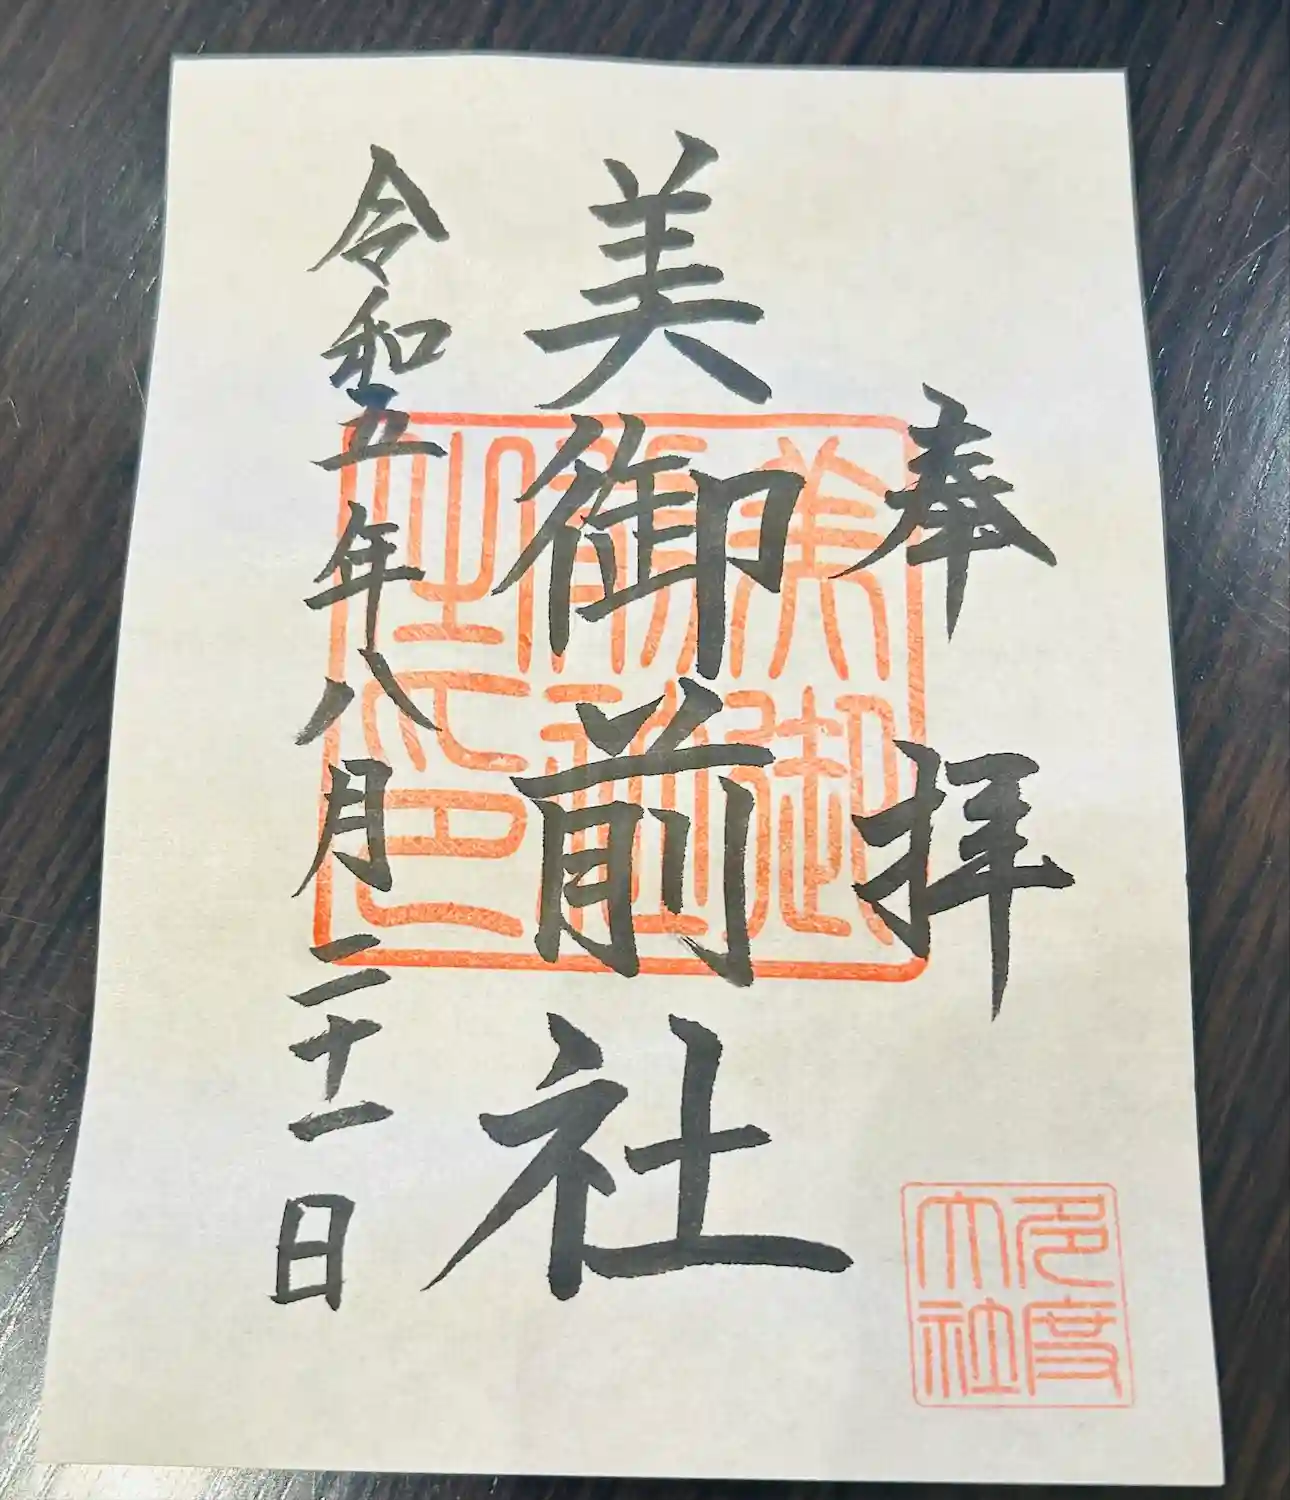 奉拝
美御前社
令和五年八月二十一日
美御前社之印
多度大社